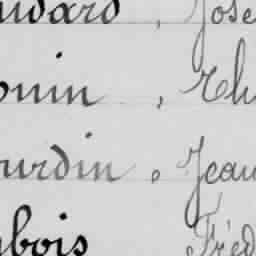 udard, Jose
ouin, Th
urdin, Jean
bois Fréd